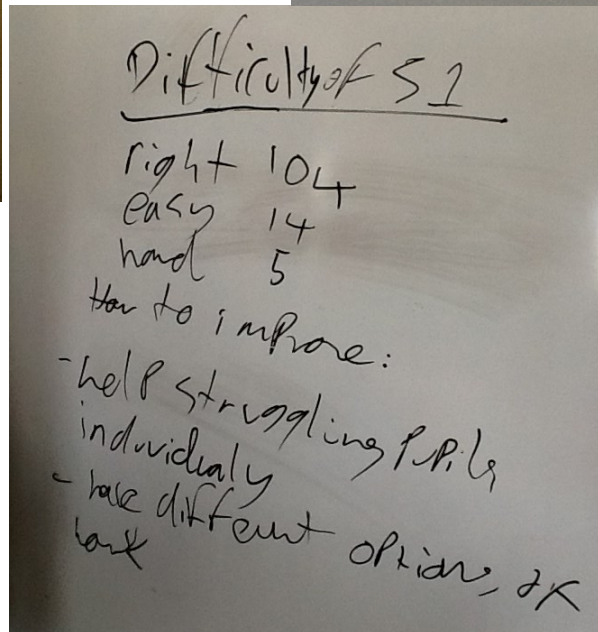 Difficulty of S1
right 104
easy 14
hard 5
How to improve:
- help struggling pupils
individualy
- have different options, of
work